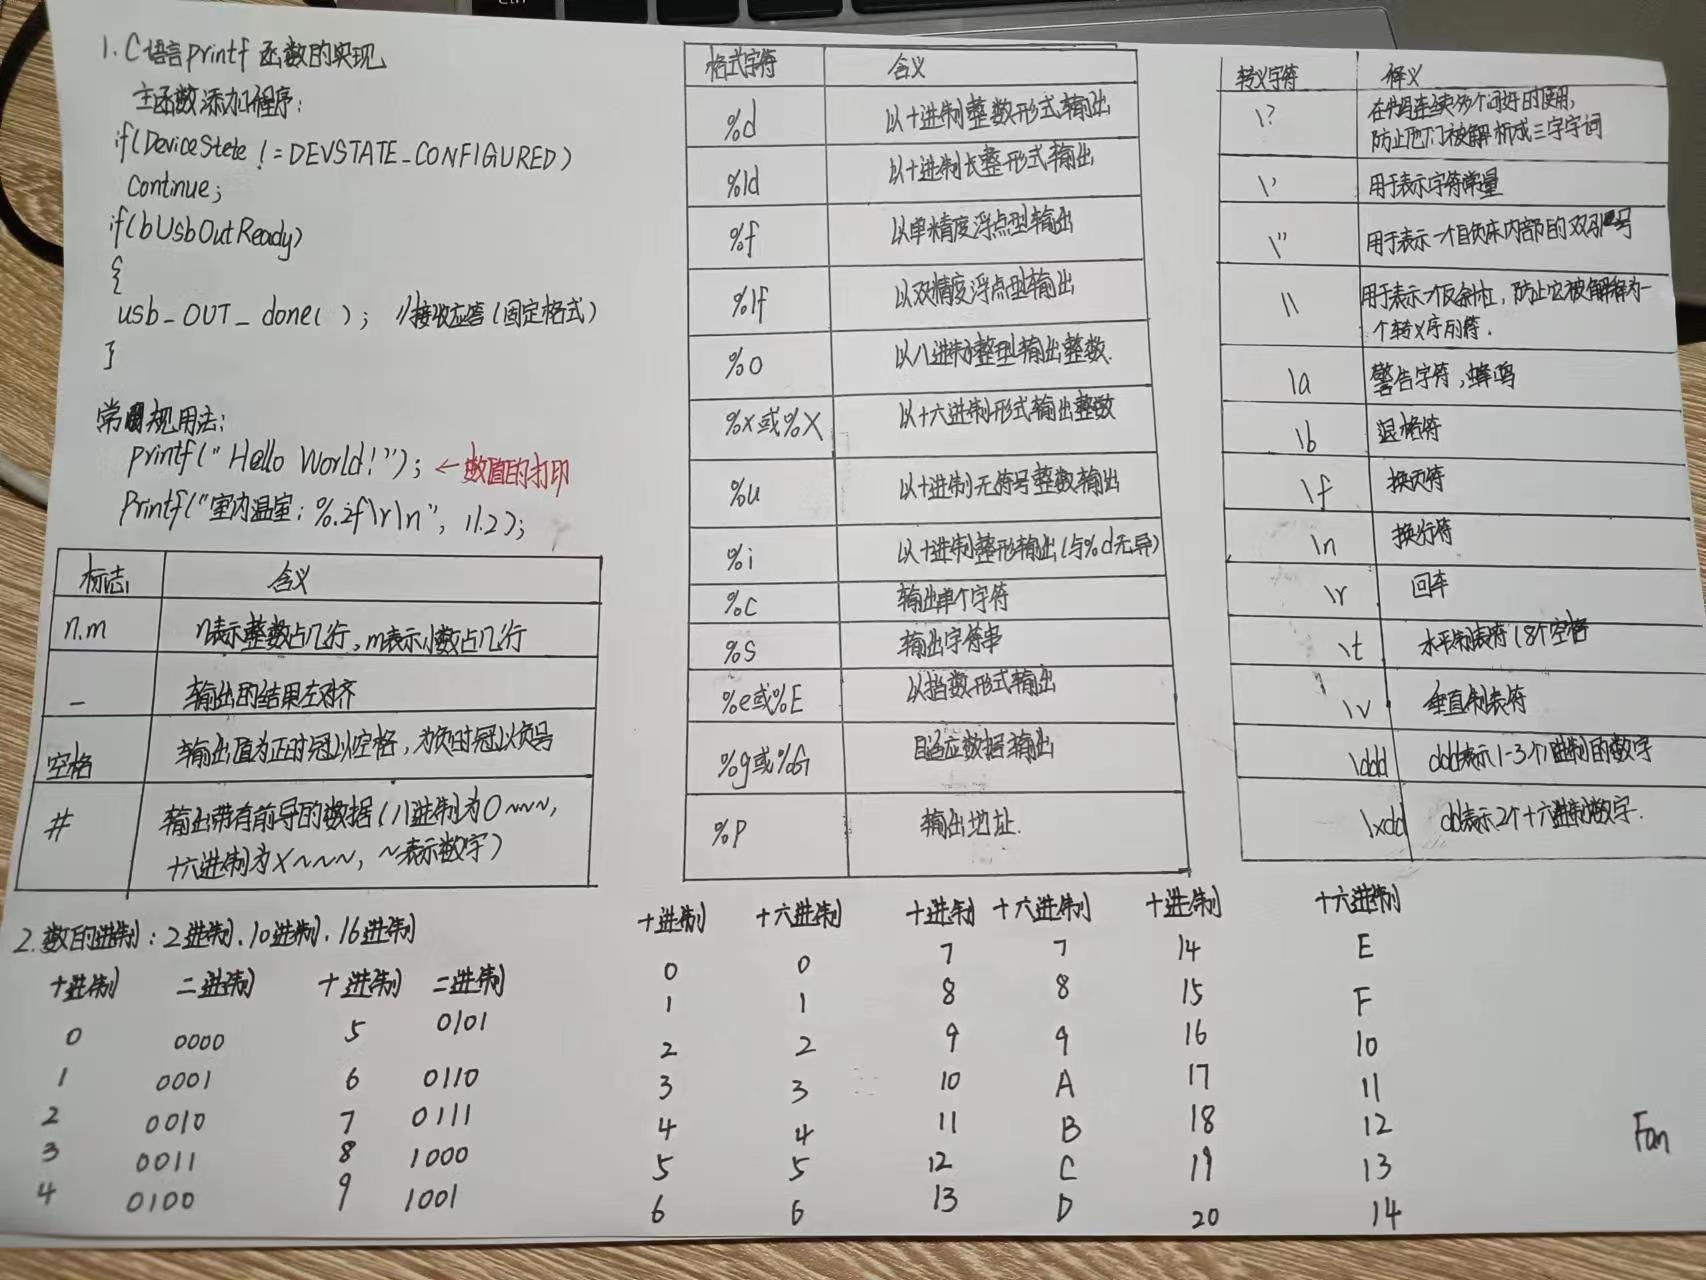 1. C语言printf 函数的实现
主函数添加程序:
if(DeviceStete != DEVSTATE_CONFIGURED)
Continue;
if(bUsbOutReady)
{
usb_OUT_done( ); //接收应答(固定格式)
}
常规用法:
printf("Hello World!"); ←数值的打印
Printf("室内温室: %.2f\r\n", 11.2);
标志 含义
n.m n表示整数占几行,m表示小数占几行
- 输出的结果左对齐
空格 输出值为正时冠以空格,为负时冠以负号
# 输出带有前导的数据(八进制为0~~~,
十六进制为X~~~, ~表示数字)
格式字符 含义
%d 以十进制整数形式输出
%ld 以十进制长整形式输出
%f 以单精度浮点型输出
%lf 以双精度浮点型输出
%o 以八进制整型输出整数.
%x或%X 以十六进制形式输出整数
%u 以十进制无符号整数输出
%i 以十进制整形输出(与%d无异)
%C 输出单个字符
%S 输出字符串
%e或%E 以指数形式输出
%g或%G 自适应数据输出
%P 输出地址.
转义字符 释义
\? 在书写连续多个问好的使用,
防止他们被解析成三字字词
\' 用于表示字符常量
\" 用于表示一个自负床内部的双引号
\\ 用于表示一个反斜杠,防止它被解释为一
个转义序列符.
\a 警告字符,蜂鸣
\b 退格符
\f 换页符
\n 换行符
\r 回车
\t 水平制表符(8个空格
\v 垂直制表符
\ddd ddd表示1-3个八进制的数字
\xdd dd表示2个十六进制数字.
2.数的进制:2进制.10进制.16进制
十进制 二进制 十进制 二进制
0 0000 5 0101
1 0001 6 0110
2 0010 7 0111
3 0011 8 1000
4 0100 9 1001
十进制 十六进制 十进制 十六进制 十进制 十六进制
0 0 7 7 14 E
1 1 8 8 15 F
2 2 9 9 16 10
3 3 10 A 17 11
4 4 11 B 18 12
5 5 12 C 19 13
6 6 13 D 20 14
Fan